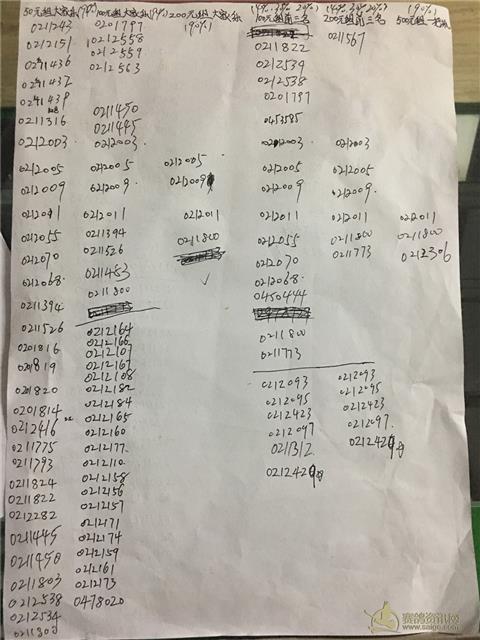 50元组大数标(9%) 100元组大数标(9%) 200元组大数标(90%) 100元组前三名 200元组前三名 500元组一老标(90%)
0211243 0201797 0211567
0212151 0212558 0211822
0211436 0212559 0212539
0211432 0212563 0212538
0211439 0201797
0211316 0211450 0453585
0211445
0212003 0212003 0212003 0212003
0212005 0212005 0212005 0212005 0212005
0212009 0212009 0212009 0212009 0212009
0212011 0212011 0212011 0212011 0212011 0212011
0212055 0211394 0211800 0212055 0211800 0211800
0212070 0211526 0212070 0211773 0212306
0212068 0211483 0212068
0211394 0211800 0450444
0211526 0212164 0211800
0201816 0212166 0211773
0201819 0212167
0201820 0212108 0212093 0212093
0201814 0212182 0212095 0212095
0212416 0212184 0212423 0212423
0211775 0212165 0212097 0212097
0211793 0212160 0211312
0211824 0212177
0211822 0212110
0212282 0212158
0211445 0212156
0211450 0212157
0211803 0212171
0212538 0212174
0212534 0212159
0212161
0212173
0478020
赛鸽资讯网
www.saige.com